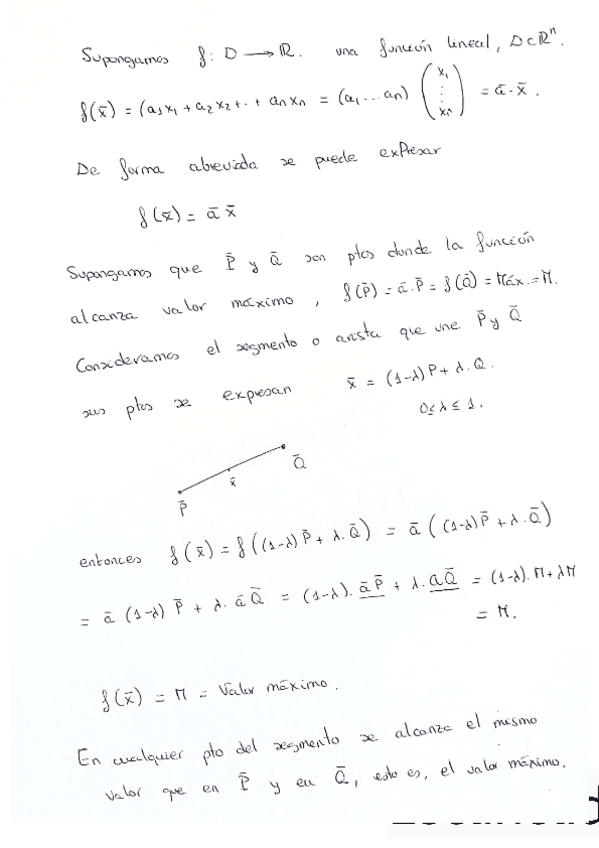 Supongamos f: D → R. una función lineal, D⊂Rⁿ.
f(x̄) = (a₁x₁ + a₂x₂ + · + aₙxₙ = (a₁ ... aₙ) (x₁ ⋮ xₙ) = ā · x̄ .
De forma abreviada se puede exPresar
f(x̄) = ā x̄
Supongamos que P̄ y Q̄ son ptos donde la función
alcanza valor máximo , f(P̄) = ā.P̄ = f(Q̄) = Máx. = M.
Consideramos el segmento o arista que une P̄ y Q̄
sus ptos se expresan x̄ = (1-λ) P + λ . Q .
0 ≤ λ ≤ 1 .
Q̄
x̄
P̄
entonces f(x̄) = f((1-λ) P̄ + λ . Q̄) = ā ((1-λ) P̄ + λ . Q̄)
= ā (1-λ) P̄ + λ . ā Q̄ = (1-λ) . ā P̄ + λ . ā Q̄ = (1-λ) . M + λ M
= M .
f(x̄) = M = Valor máximo .
En cualquier pto del segmento se alcanza el mismo
valor que en P̄ y en Q̄ , esto es, el valor máximo .